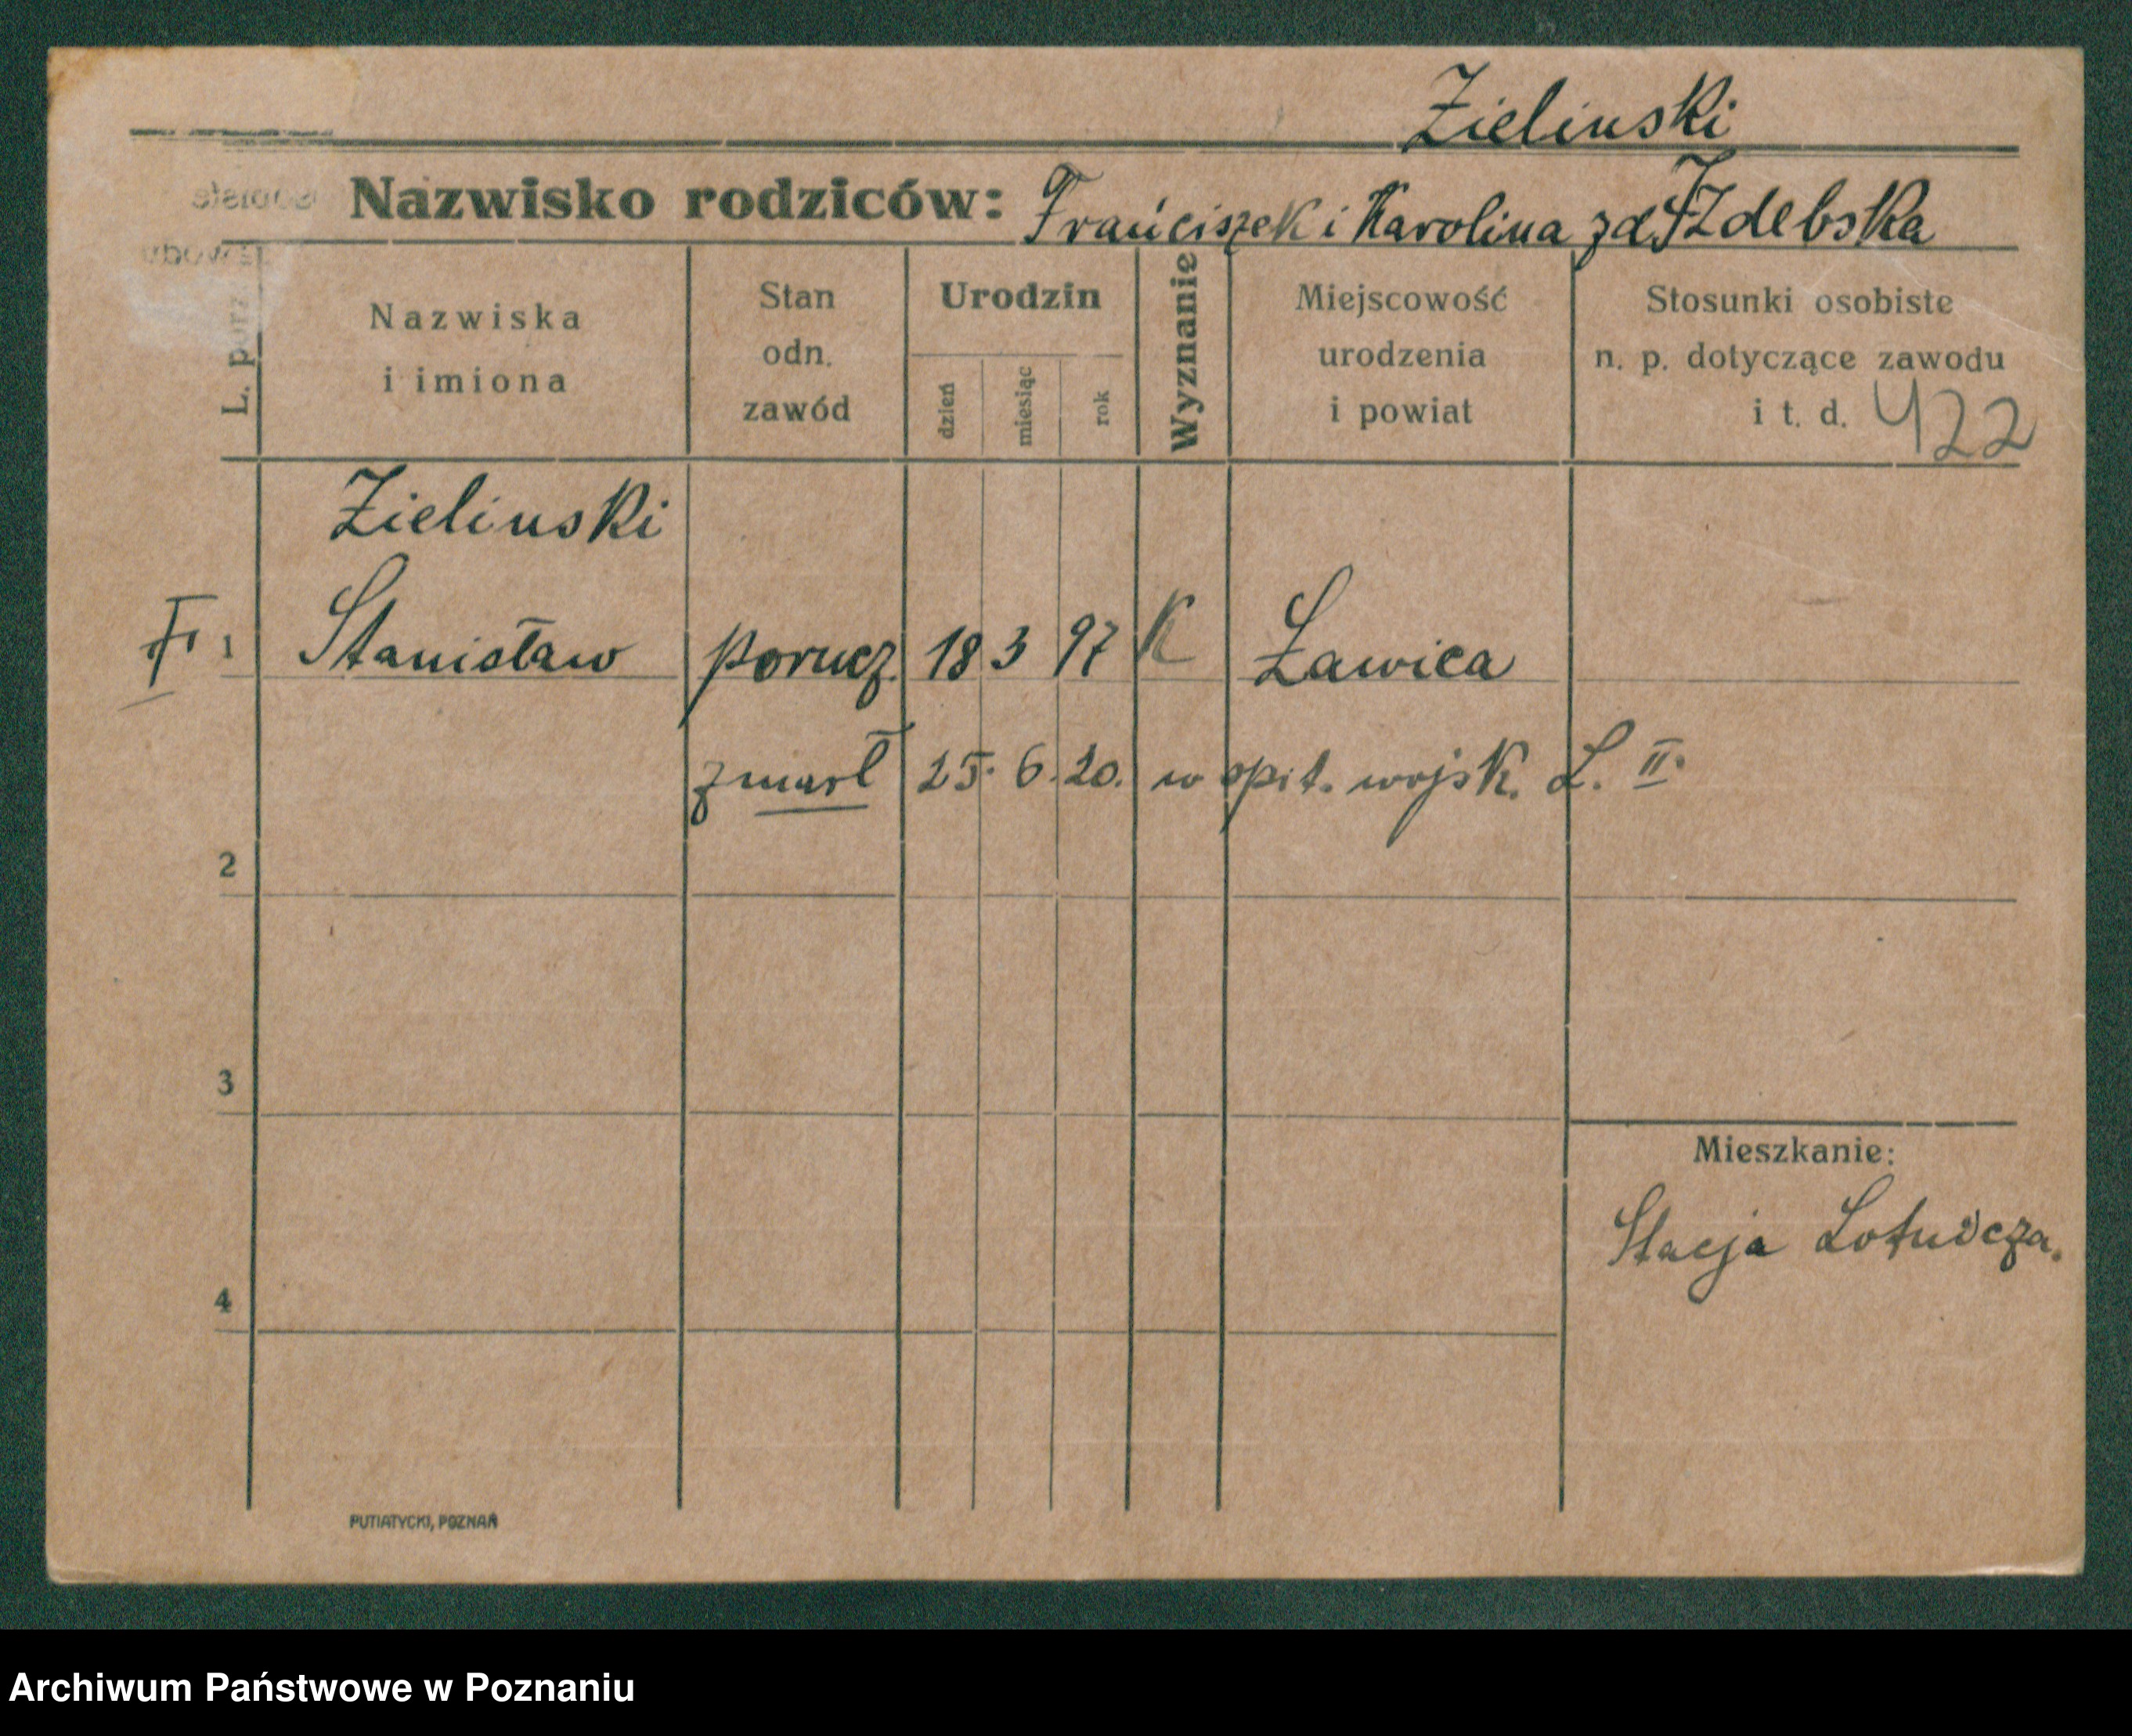 Zielinski
Nazwisko rodziców: Franciszek i Karolina zd Izdebska
L. porz.
Nazwiska
i imiona
Stan
odn.
zawód
Urodzin
dzień
miesiąc
rok
Wyznanie
Miejscowość
urodzenia
i powiat
Stosunki osobiste
n. p. dotyczące zawodu
i t. d. 422
Zielinski
1 Stanisław porucz. 18 3 97 K Ławica
zmarł 25. 6. 20. w szpit. wojsk. L. II.
2
3
Mieszkanie:
Stacja Lotnicza.
4
PUTIATYCKI, POZNAŃ
Archiwum Państwowe w Poznaniu